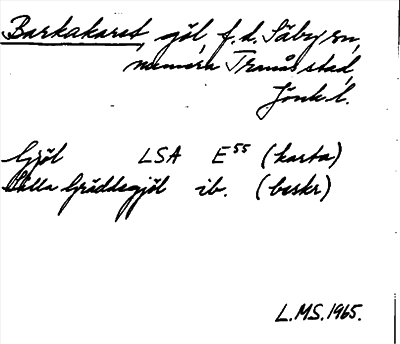 Barkakaret, göl, f.d. Säbyn,
numera Tranås stad,
Jönk. l.
Gjöl LSA E55 (karta)
Lilla Gräddegjöl ib. (beskr)
L.MS.1965.